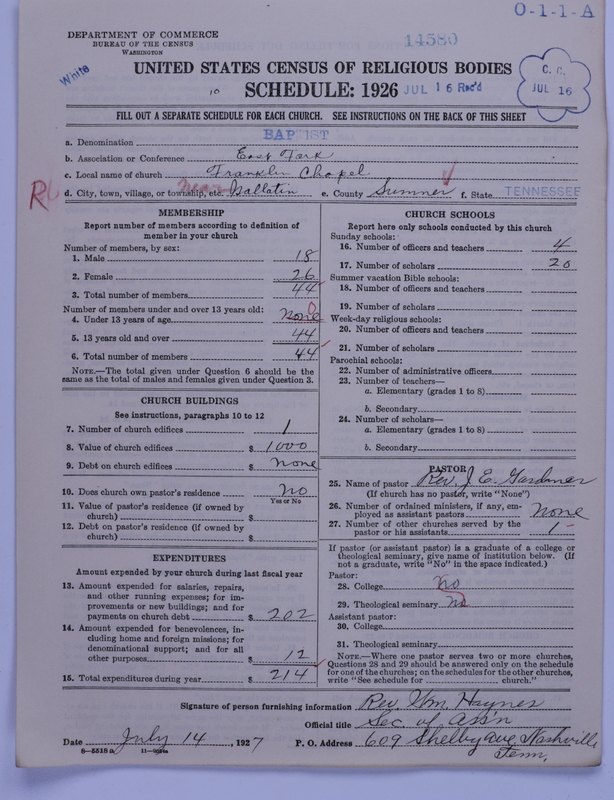 O-1-1-A
DEPARTMENT OF COMMERCE
BUREAU OF THE CENSUS
WASHINGTON
14580
White
UNITED STATES CENSUS OF RELIGIOUS BODIES
10
SCHEDULE: 1926
JUL 16 Rec'd
C. C.
JUL 16
FILL OUT A SEPARATE SCHEDULE FOR EACH CHURCH. SEE INSTRUCTIONS ON THE BACK OF THIS SHEET
a. Denomination BAPTIST
b. Association or Conference East Fork
c. Local name of church Franklin Chapel
d. City, town, village, or township, etc. near Gallatin e. County Sumner f. State TENNESSEE
MEMBERSHIP
Report number of members according to definition of
member in your church
Number of members, by sex:
1. Male 18
2. Female 26
3. Total number of members 44
Number of members under and over 13 years old:
4. Under 13 years of age None 0
5. 13 years old and over 44
6. Total number of members 44
NOTE.—The total given under Question 6 should be
same as the total of males and females given under Question 3.
CHURCH BUILDINGS
See instructions, paragraphs 10 to 12
7. Number of church edifices 1
8. Value of church edifices $ 1000
9. Debt on church edifices $ none
10. Does church own pastor's residence no
Yes or No
11. Value of pastor's residence (if owned by
church) $
12. Debt on pastor's residence (if owned by
church) $
EXPENDITURES
Amount expended by your church during last fiscal year
13. Amount expended for salaries, repairs,
and other running expenses; for im-
provements or new buildings; and for
payments on church debt $ 202
14. Amount expended for benevolences, in-
cluding home and foreign missions; for
denominational support; and for all
other purposes $ 12
15. Total expenditures during year $ 214
CHURCH SCHOOLS
Report here only schools conducted by this church
Sunday schools:
16. Number of officers and teachers 4
17. Number of scholars 20
Summer vacation Bible schools:
18. Number of officers and teachers
19. Number of scholars
Week-day religious schools:
20. Number of officers and teachers
21. Number of scholars
Parochial schools:
22. Number of administrative officers
23. Number of teachers—
a. Elementary (grades 1 to 8)
b. Secondary
24. Number of scholars—
a. Elementary (grades 1 to 8)
b. Secondary
PASTOR
25. Name of pastor Rev. J. E. Gardner
(If church has no pastor, write "None")
26. Number of ordained ministers, if any, em-
ployed as assistant pastors None
27. Number of other churches served by the
pastor or his assistants 1
If pastor (or assistant pastor) is a graduate of a college or
theological seminary, give name of institution below. (If
not a graduate, write "No" in the space indicated.)
Pastor:
28. College No
29. Theological seminary No
Assistant pastor:
30. College
31. Theological seminary
NOTE.—Where one pastor serves two or more churches,
Questions 28 and 29 should be answered only on the schedule
for one of the churches; on the schedules for the other churches,
write "See schedule for church."
Signature of person furnishing information Rev. Wm. Haynes
Official title Sec of Ass'n
Date July 14, 1927 P. O. Address 609 Shelby ave Nashville
Tenn.
8—5518 a 11—9024a